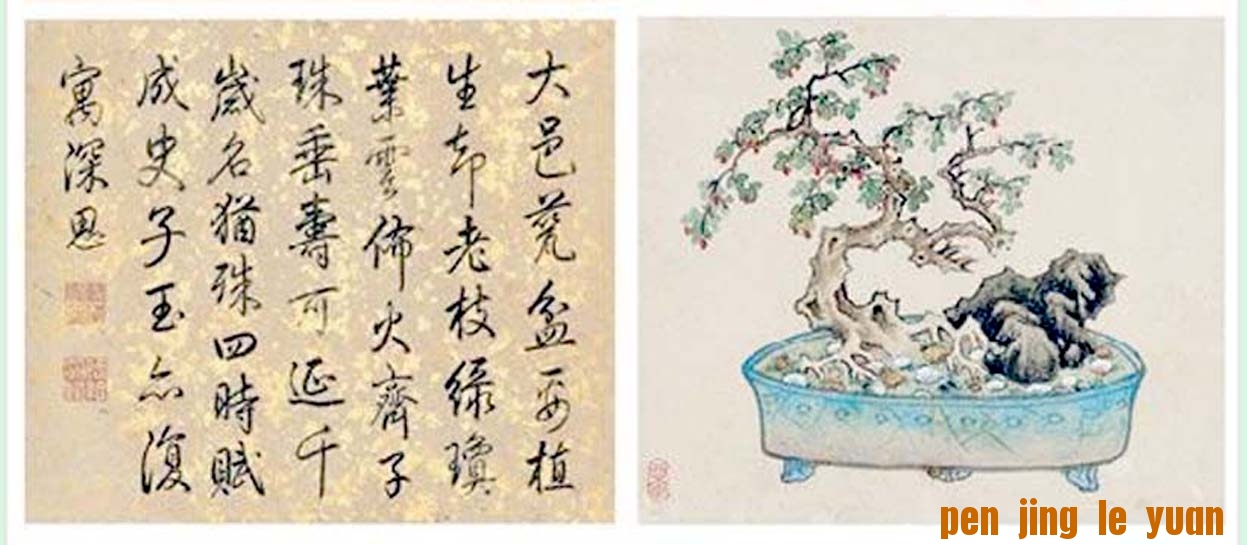 大邑甆盆植
生却老枝綠瓊
葉雲佈火齊子
珠垂壽可延千
歲名猶殊四時賦
成史子玉亦復
寓深思
pen jing le yuan